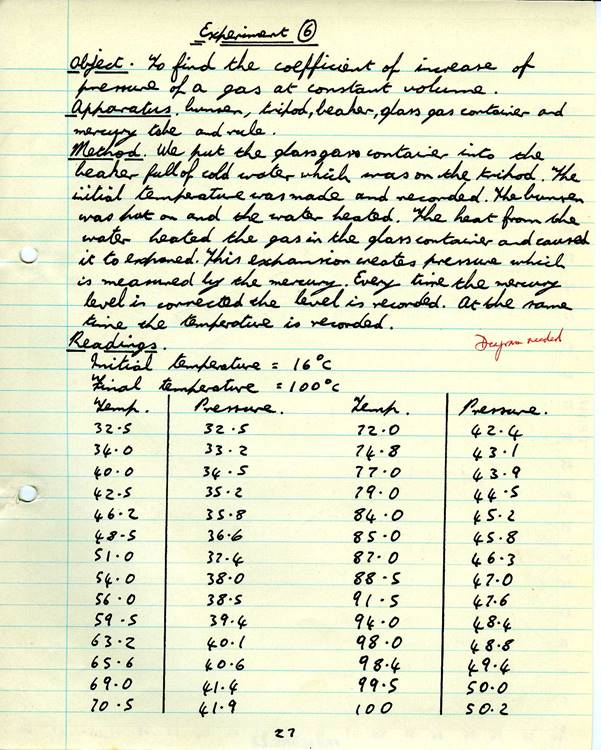 Experiment 6
Object. To find the coefficient of increase of
pressure of a gas at constant volume.
Apparatus. bunsen, tripod, beaker, glass gas container and
mercury tube and rule.
Method. We put the glass gas container into the
beaker full of cold water which was on the tripod. The
initial temperature was made and recorded. The bunsen
was put on and the water heated. The heat from the
water heated the gas in the glass container and caused
it to expand. This expansion creates pressure which
is measured by the mercury. Every time the mercury
level is corrected the level is recorded. At the same
time the temperature is recorded.
Diagram needed
Readings.
Initial temperature = 16°C
Final temperature = 100°C
Temp. Pressure. Temp. Pressure.
32.5 32.5 72.0 42.4
34.0 33.2 74.8 43.1
40.0 34.5 77.0 43.9
42.5 35.2 79.0 44.5
46.2 35.8 84.0 45.2
48.5 36.6 85.0 45.8
51.0 37.4 87.0 46.3
54.0 38.0 88.5 47.0
56.0 38.5 91.5 47.6
59.5 39.4 94.0 48.4
63.2 40.1 98.0 48.8
65.6 40.6 98.4 49.4
69.0 41.4 99.5 50.0
70.5 41.9 100 50.2
27